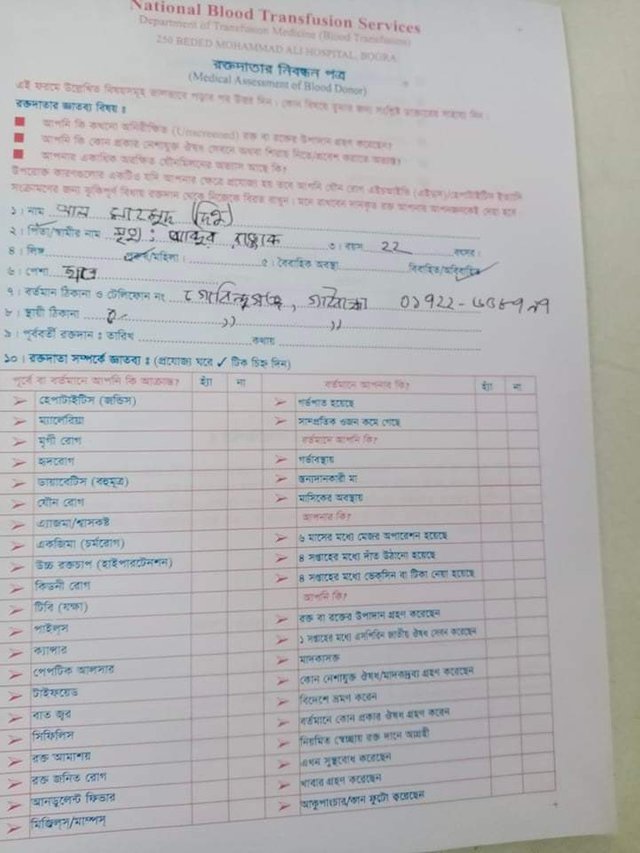 National Blood Transfusion Services
Department of Transfusion Medicine (Blood Transfusion)
250 BEDED MOHAMMAD ALI HOSPITAL, BOGRA
রক্তদাতার নিবন্ধন পত্র
(Medical Assessment of Blood Donor)
এই ফরমে উল্লেখিত বিষয়সমূহ ভালভাবে পড়ার পর উত্তর দিন। কোন বিষয়ে বুঝার জন্য সংশ্লিষ্ট ডাক্তারের সাহায্য নিন।
রক্তদাতার জ্ঞাতব্য বিষয় ঃ
আপনি কি কখনো অনিরীক্ষিত (Unscreened) রক্ত বা রক্তের উপাদান গ্রহণ করেছেন?
আপনি কি কোন প্রকার নেশাযুক্ত ঔষধ সেবনে অথবা শিরায় নিতে/প্রবেশ করাতে অভ্যস্ত?
আপনার একাধিক অরক্ষিত যৌনমিলনের অভ্যাস আছে কি?
উপরোক্ত কারণগুলোর একটিও যদি আপনার ক্ষেত্রে প্রযোজ্য হয় তবে আপনি যৌন রোগ এইচআইভি (এইডস)/হেপাটাইটিস ইত্যাদি
সংক্রমণের জন্য ঝুকিপূর্ণ বিধায় রক্তদান থেকে নিজেকে বিরত রাখুন। মনে রাখবেন দানকৃত রক্ত আপনার আপনজনকেই দেয়া হবে
১। নাম আল মাহমুদ
২। পিতা/স্বামীর নাম মৃত: আব্দুর রাজ্জাক ৩। বয়স ২২ বৎসর।
৪। লিঙ্গ পুরুষ/মহিলা। ৫। বৈবাহিক অবস্থা বিবাহিত/অবিবাহিত
৬। পেশা ছাত্র
৭। বর্তমান ঠিকানা ও টেলিফোন নং গোবিন্দগঞ্জ, গাইবান্ধা
৮। স্থায়ী ঠিকানা ঐ ,, ,,
৯। পূর্ববর্তী রক্তদান ঃ তারিখ কথায়
১০। রক্তদাতা সম্পর্কে জ্ঞাতব্য ঃ (প্রযোজ্য ঘরে ✓ টিক চিহ্ন দিন)
পূর্বে বা বর্তমানে আপনি কি আক্রান্ত? হ্যাঁ না বর্তমানে আপনার কি? হ্যাঁ না
হেপাটাইটিস (জন্ডিস) গর্ভপাত হয়েছে
ম্যালেরিয়া সাম্প্রতিক ওজন কমে গেছে
মৃগী রোগ বর্তমানে আপনি কি?
হৃদরোগ গর্ভাবস্থায়
ডায়াবেটিস (বহুমূত্র) স্তন্যদানকারী মা
যৌন রোগ মাসিকের অবস্থায়
এ্যাজমা/শ্বাসকষ্ট আপনার কি?
একজিমা (চর্মরোগ) ৬ মাসের মধ্যে মেজর অপারেশন হয়েছে
উচ্চ রক্তচাপ (হাইপারটেনশন) ৪ সপ্তাহের মধ্যে দাঁত উঠানো হয়েছে
কিডনী রোগ ৪ সপ্তাহের মধ্যে ভেকসিন বা টিকা নেয়া হয়েছে
টিবি (যক্ষা) আপনি কি?
পাইলস রক্ত বা রক্তের উপাদান গ্রহণ করেছেন
ক্যান্সার ১ সপ্তাহের মধ্যে এসপিরিন জাতীয় ঔষধ সেবন করেছেন
পেপটিক আলসার মাদকাসক্ত
টাইফয়েড কোন নেশাযুক্ত ঔষধ/মাদকদ্রব্য গ্রহণ করেছেন
বাত জ্বর বিদেশে ভ্রমণ করেন
সিফিলিস বর্তমানে কোন প্রকার ঔষধ গ্রহণ করেন
রক্ত আমাশয় নিয়মিত স্বেচ্ছায় রক্ত দানে আগ্রহী
রক্ত জনিত রোগ এখন সুস্থবোধ করেছেন
আনডুলেন্ট ফিভার খাবার গ্রহণ করেছেন
মিজিল্স/মাম্পস্ আকুপাংচার/কান ফুটো করেছেন